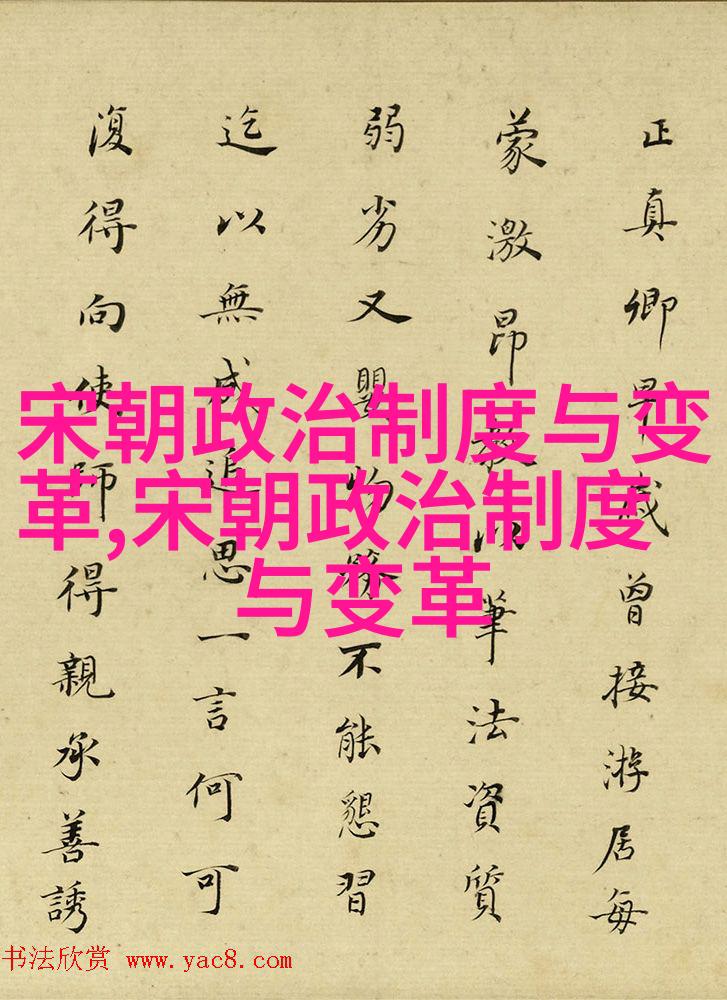 正真卿早歲曾接游居每
蒙激昂教以筆法資質
弱劣又嬰物務不能懇習
迄以無成追思一言何可
復得向使師得親承善誘
宋朝政治制度与变
革,宋朝政治制度
与变革
书法欣赏 www.yac8.com